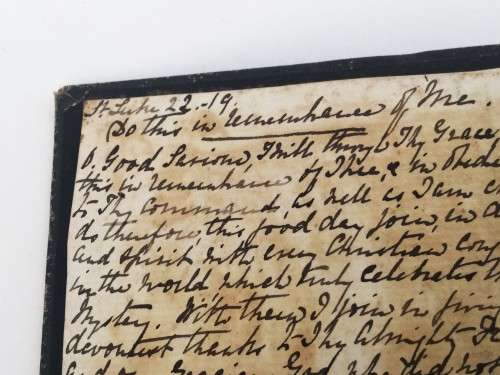 St Luke 22.-19.
Do this in remembrance of Me.
O. Good Saviour, I will through Thy Grace,
this in remembrance of Thee, & in obed
to Thy commands, as well as I am
do therefore, this good day join, in
and spirit with every Christian Cong
in the world, which truly celebrates
Mystery. With them I join in givin
devoutest thanks to Thy Almighty
Gracious God who did not